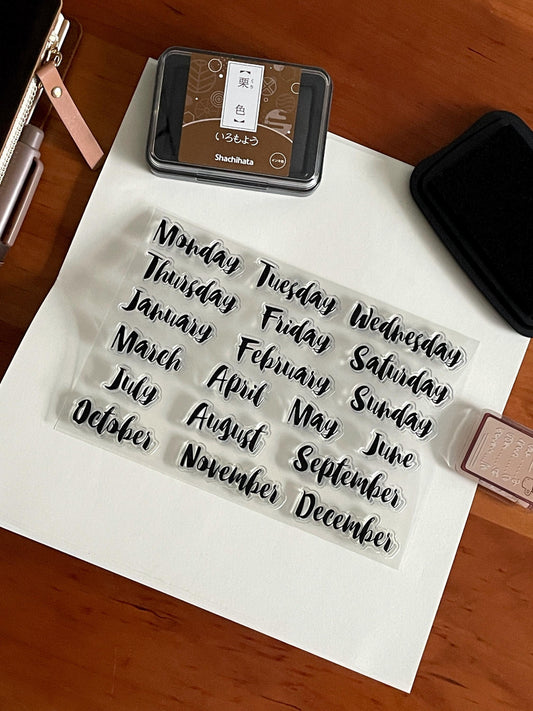 【栗色】
くり
いろもよう
Shachihata
Monday Tuesday Wednesday
Thursday Friday Saturday
January February Sunday
March April May June
July August September
October November December